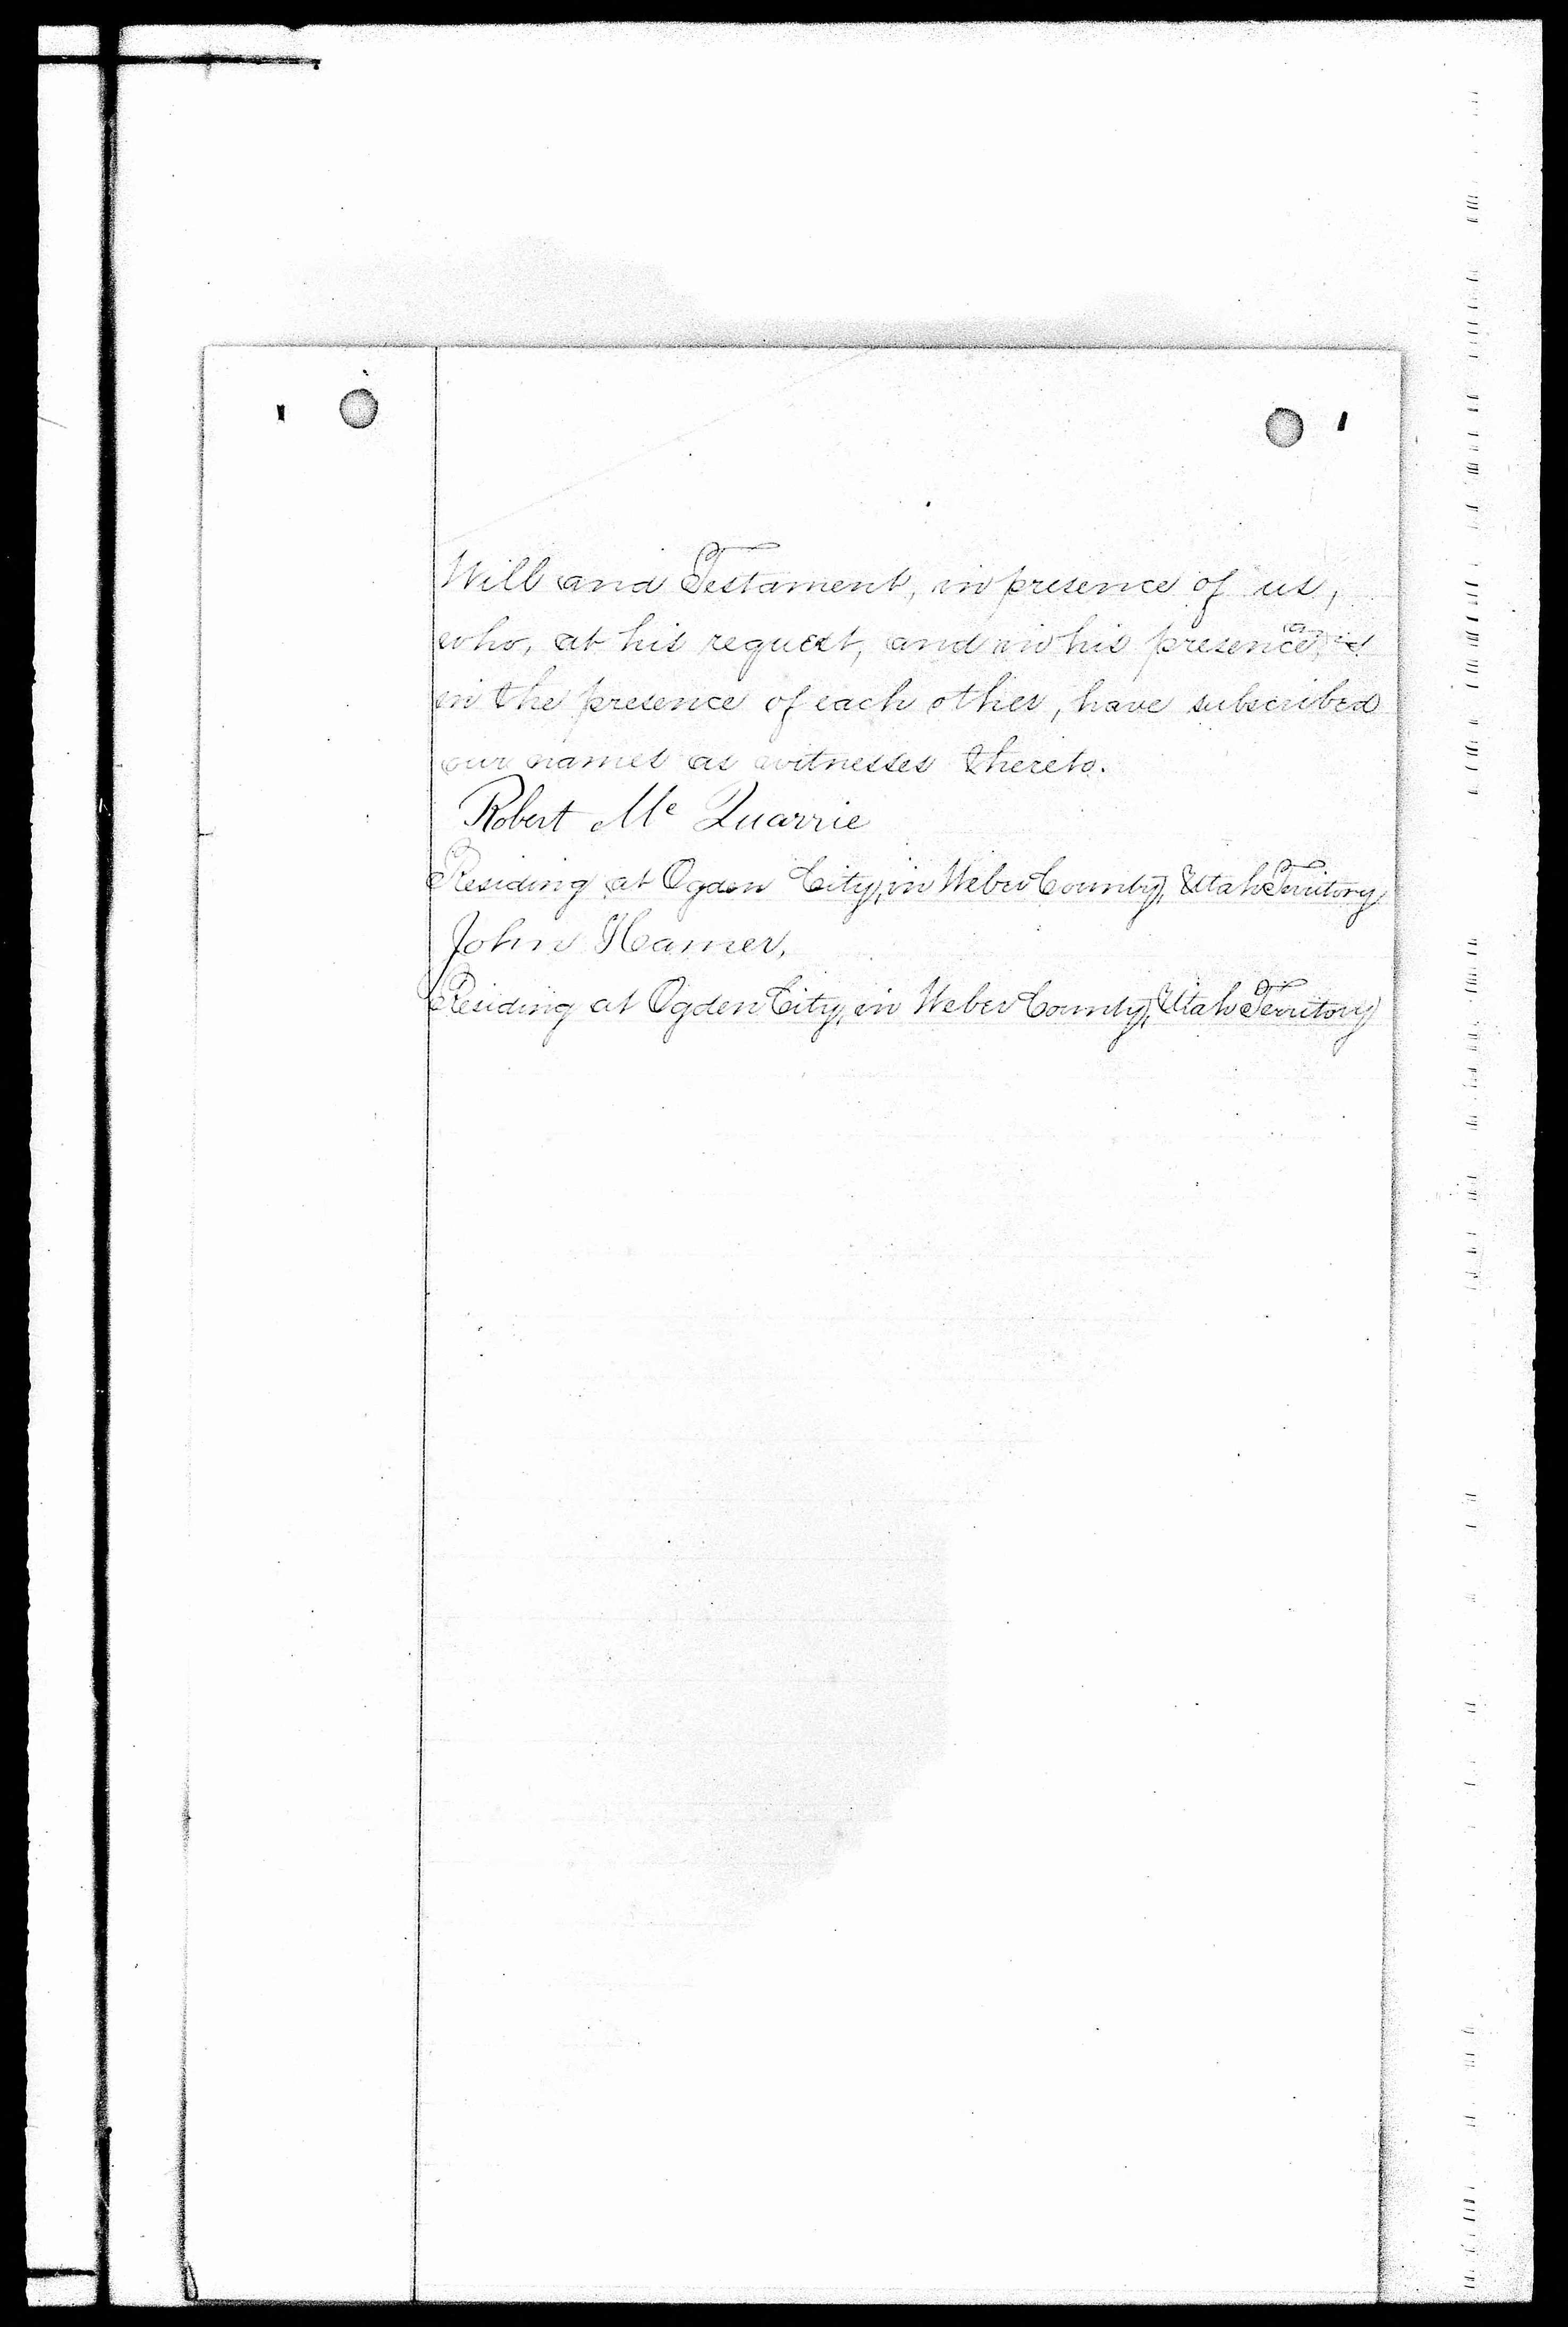 Will and Testament, in presence of us,
who, at his request, and in his presence, and
in the presence of each other, have subscribed
our names as witnesses thereto.
Robert Mc Quarrie
Residing at Ogden City, in Weber County, Utah Territory
John Hamer,
Residing at Ogden City, in Weber County, Utah Territory